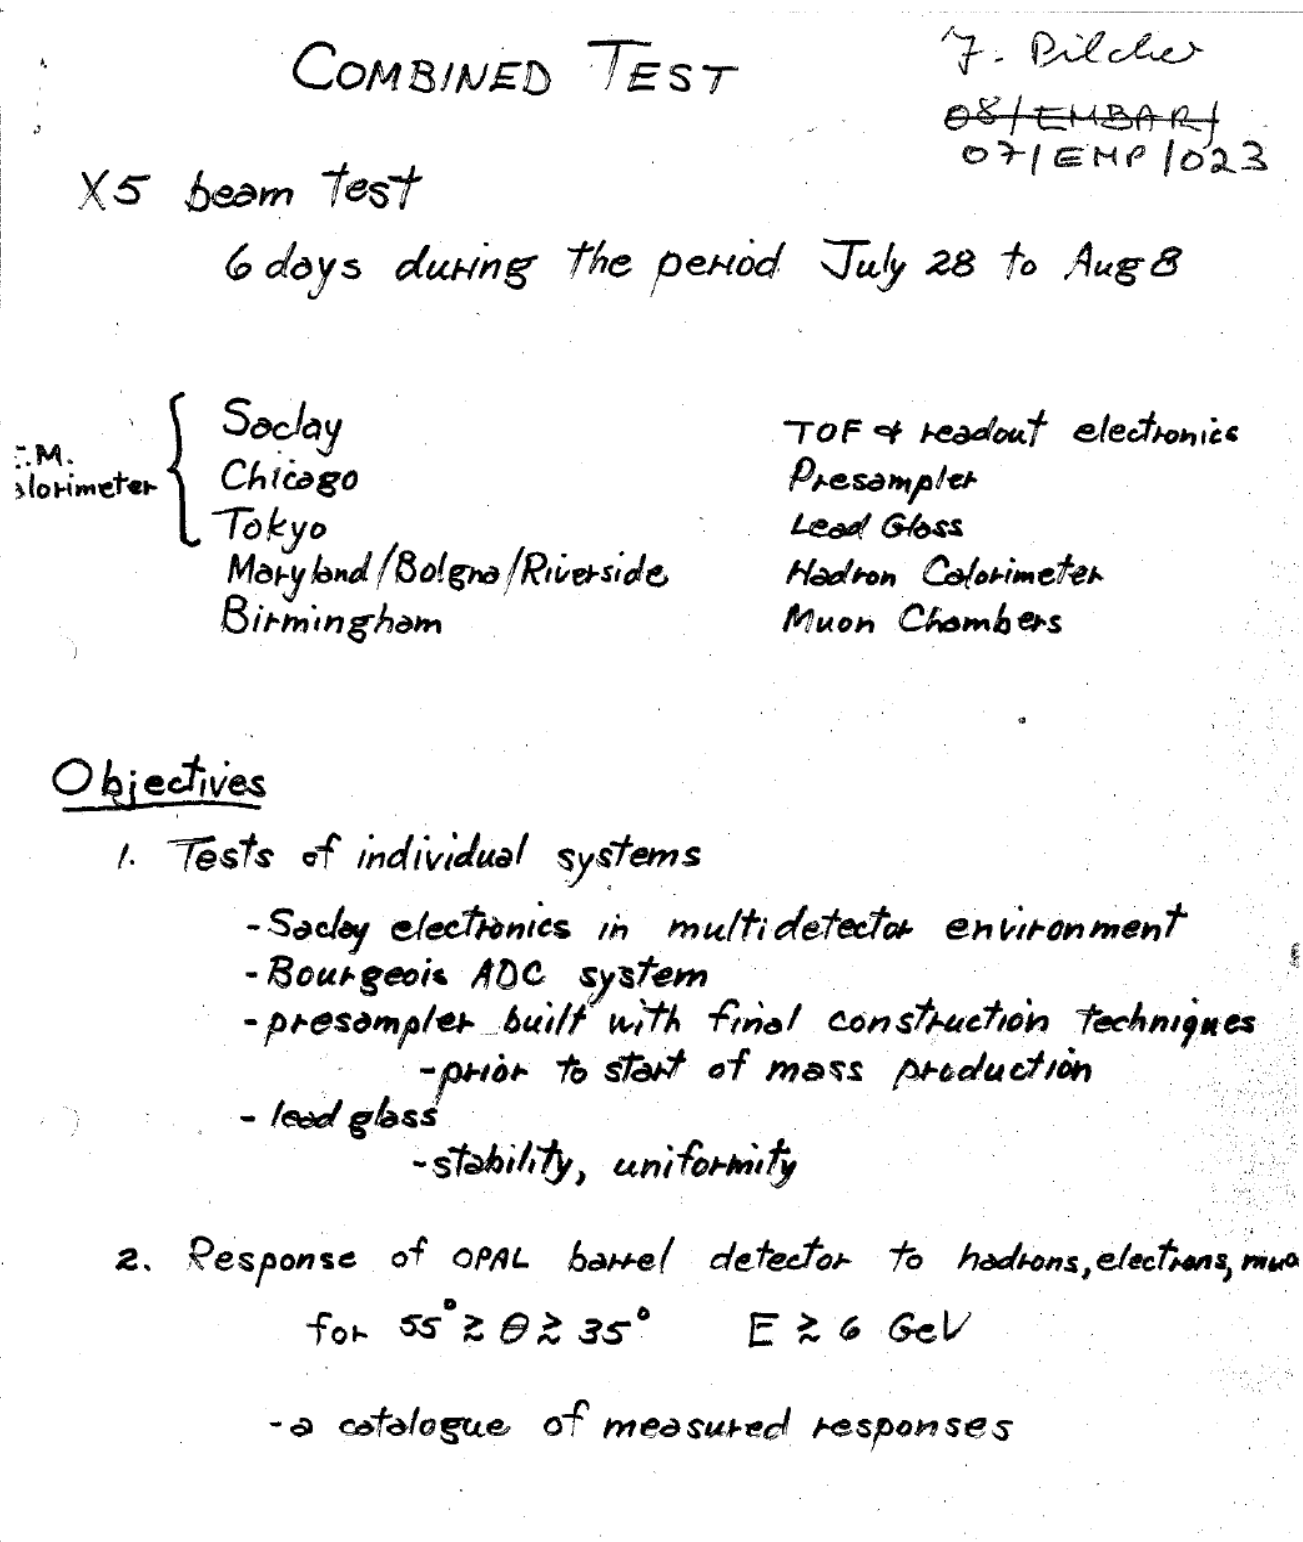 COMBINED TEST
J. Pilcher
08/EMBAR/
07/EMP/023
X5 beam test
6 days during the period July 28 to Aug 8
E.M. Saclay TOF & readout electronics
alorimeter Chicago Presampler
Tokyo Lead Glass
Maryland/Bolgna/Riverside Hadron Calorimeter
Birmingham Muon Chambers
Objectives
1. Tests of individual systems
- Saclay electronics in multidetector environment
- Bourgeois ADC system
- presampler built with final construction techniques
- prior to start of mass production
- lead glass
- stability, uniformity
2. Response of OPAL barrel detector to hadrons, electrons, muo
for 55° ≳ θ ≳ 35° E ≳ 6 GeV
- a catalogue of measured responses